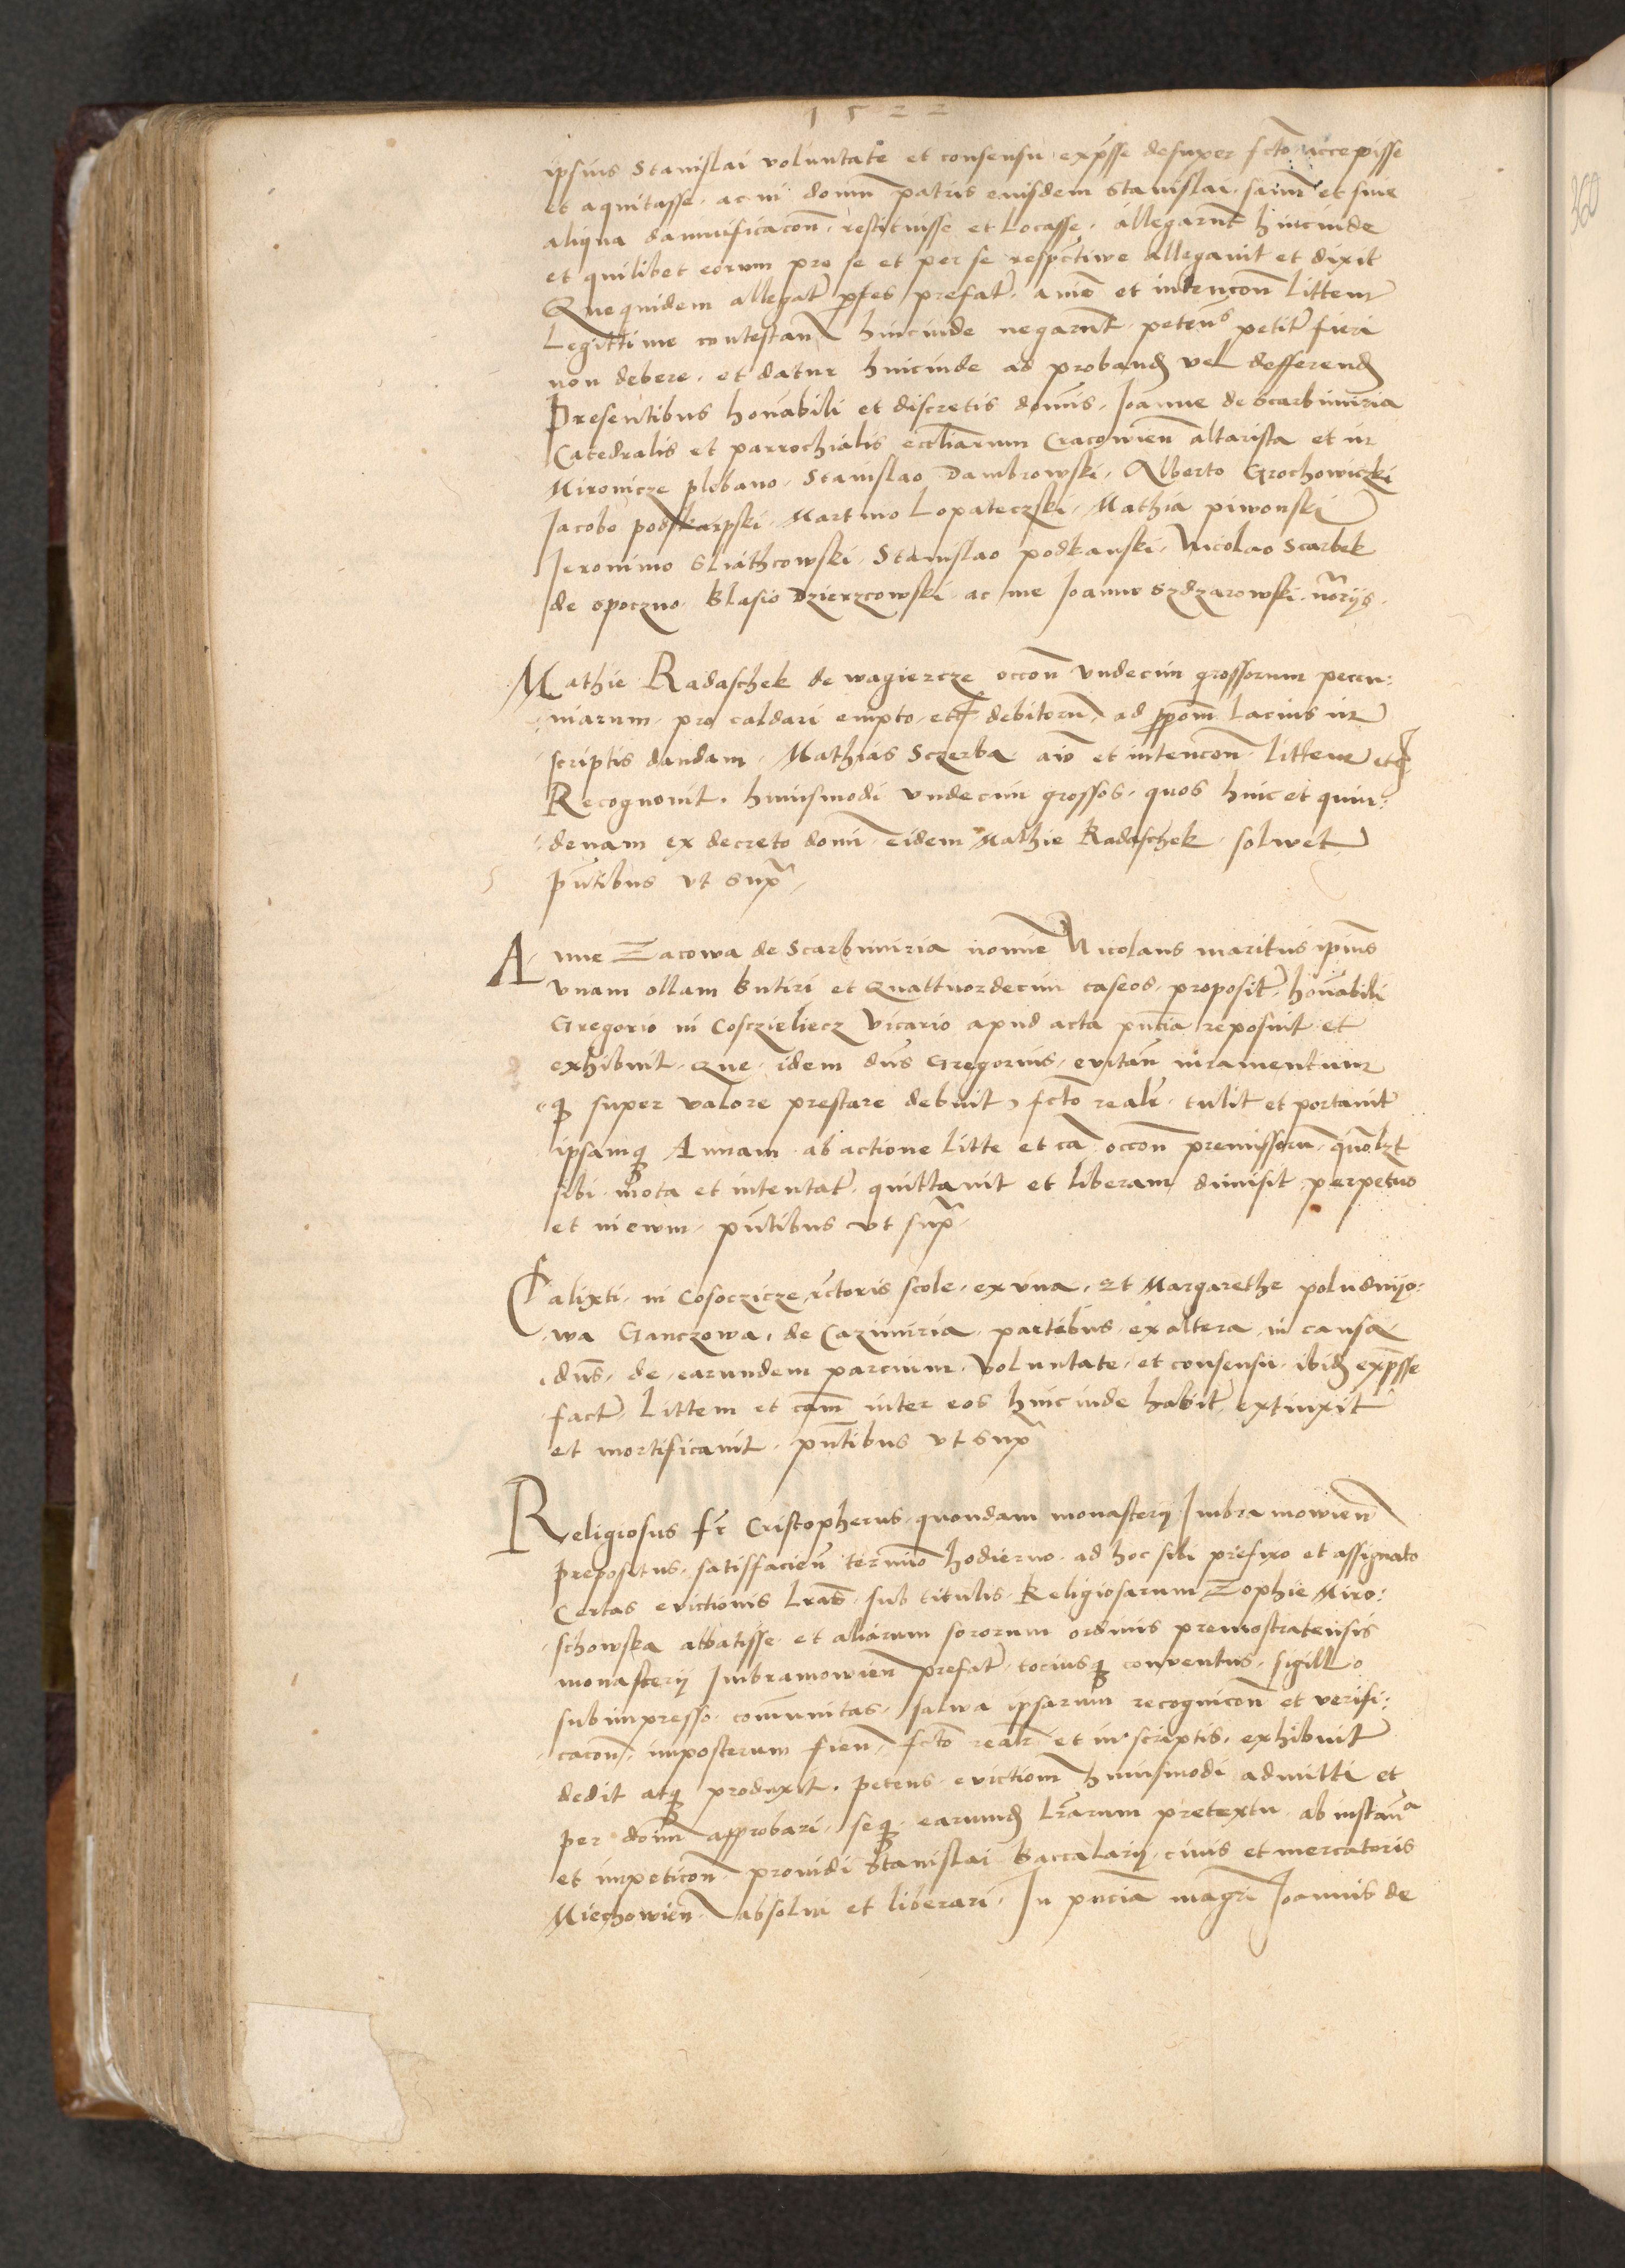 1522
ipsius Stanislai voluntate et consensu expsse desuper fcto accepisse
et aquitasse, ac in domu patris eiusdem Stanislai, sanu et sine
aliqua damnificacon, restituisse et locasse, allegarut hincinde
et quilibet eorum pro se et per se respctiwe allegavit et dixit
Quequidem allegat ptes prefat, animo et intencon littem
Legittime contestan hincinde negarut, petens petit fieri
non debere, et datur hincinde ad proband vel defferend
Presentibus honabili et discretis domis, Joanne de Scarbimiria
Catedralis et parrochialis eccliarum Cracowien altarista et in
Mironicze plebano, Stanislao Dambrowski, Alberto Grochowiczki
Jacobo podskarpski, Martino Lopateczski, Mathia piwonski
Jeronimo Sliathcowski, Stanislao podkanski, Nicolao Scarbek
de opoczno, Blasio Dzierzcowski, ac me Joanne Szdzarowski, noriis.
Mathie Radaschek de wagiercze occon undecim grossorum pecu:
:niarum, pro caldari empto, et debitoru, ad ppom lacius in
scriptis dandam, Mathias Sczerba aio et intencon littem etc
Recognovit, huiusmodi undecim grossos, quos hinc et quin:
:denam ex decreto domi eidem Mathie Radaschek, solwet
pntibus ut supra
Anne Zacowa de Scarbimiria nomine Nicolaus maritus ipius
unam ollam butiri et Quattuordecim caseos, proposit, honabili
Gregorio in Cosczieliecz vicario apud acta pncia reposuit et
exhibuit, Que, idem dns Gregorius, evitan iuramentum
q super valore prestare debuit, fcto realr, tulit et portavit
ipsamq Annam ab actione litte et ca occon premissoru, quolzt
sibi mota et intentat, quittavit et liberam dimisit perpetuo
et in ewm, pntibus ut supra
Calixti, in Cosoczicze rctoris scole, ex una, et Margarethe poludnijo:
:wa Ganczowa, de Cazimiria, partibus, ex altera, in causa
dns, de, earundem parcium, voluntate, et consensu, ibid expsse
fact, Littem et cam inter eos hincinde habit, extinxit
et mortificavit, pntibus ut supra
Religiosus fr Cristopherus, quondam monasterij Imbramowien
prepositus, satisfacien termino hodierno ad hoc sibi prefixo et assignato
Certas evictionis lras, sub titulis, Religiosarum Zophie Miro:
:schowska abbatisse, et aliarum sororum ordinis premostratensis
monasterij Imbramowien prefat, tociusq conventus, sigillo
subimpresso, comunitas, salwa ipsarum recognicon et verifi:
cacon, imposterum fien, fcto realr et in scriptis, exhibuit
dedit atq produxit, petens, evictiom huiusmodi admitti et
per domi approbari, seq, earund lrarum pretextu ab instana
et impeticon providi Stanislai Baccalarij, civis et mercatoris
Miechowien, absolvi et liberari, In pncia magri Joannis de
360